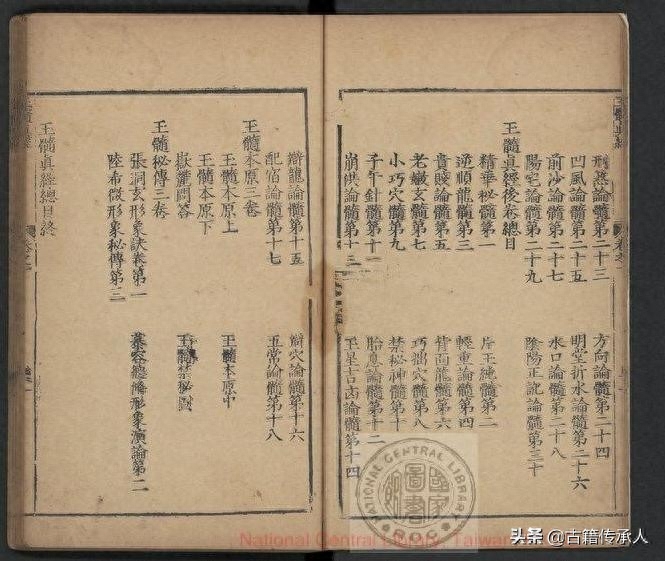 刑煞論髓第二十三　方向論髓第二十四
凹風論髓第二十五　明堂折水論髓第二十六
前沙論髓第二十七　水口論髓第二十八
陽宅論髓第二十九　陰陽正訛論髓第三十
玉髓眞經後卷總目
精華秘髓第一　片玉純髓第二
逆順龍論髓第三　輕重論髓第四
貴賤論髓第五　背面龍髓第六
老嫩玄髓第七　巧拙穴髓第八
小巧穴髓第九　禁秘神髓第十
子午針髓第十一　胎息論髓第十二
崩洪論髓第十三　玉星吉凶論髓第十四
辯龍論髓第十五　辯穴論髓第十六
配宿論髓第十七　五常論髓第十八
玉髓本原三卷
玉髓本原上　玉髓本原中
玉髓本原下
嶽麓問答　玉髓禁秘圖
玉髓秘傳三卷
張洞玄形象訣卷第一　慕容總脩形象演論第二
陸希微形象秘傳第三
玉髓眞經總目終
NATIONAL CENTRAL LIBRARY
R O C
國家圖書館
National Central Library, Taiwan
头条 @古籍传承人